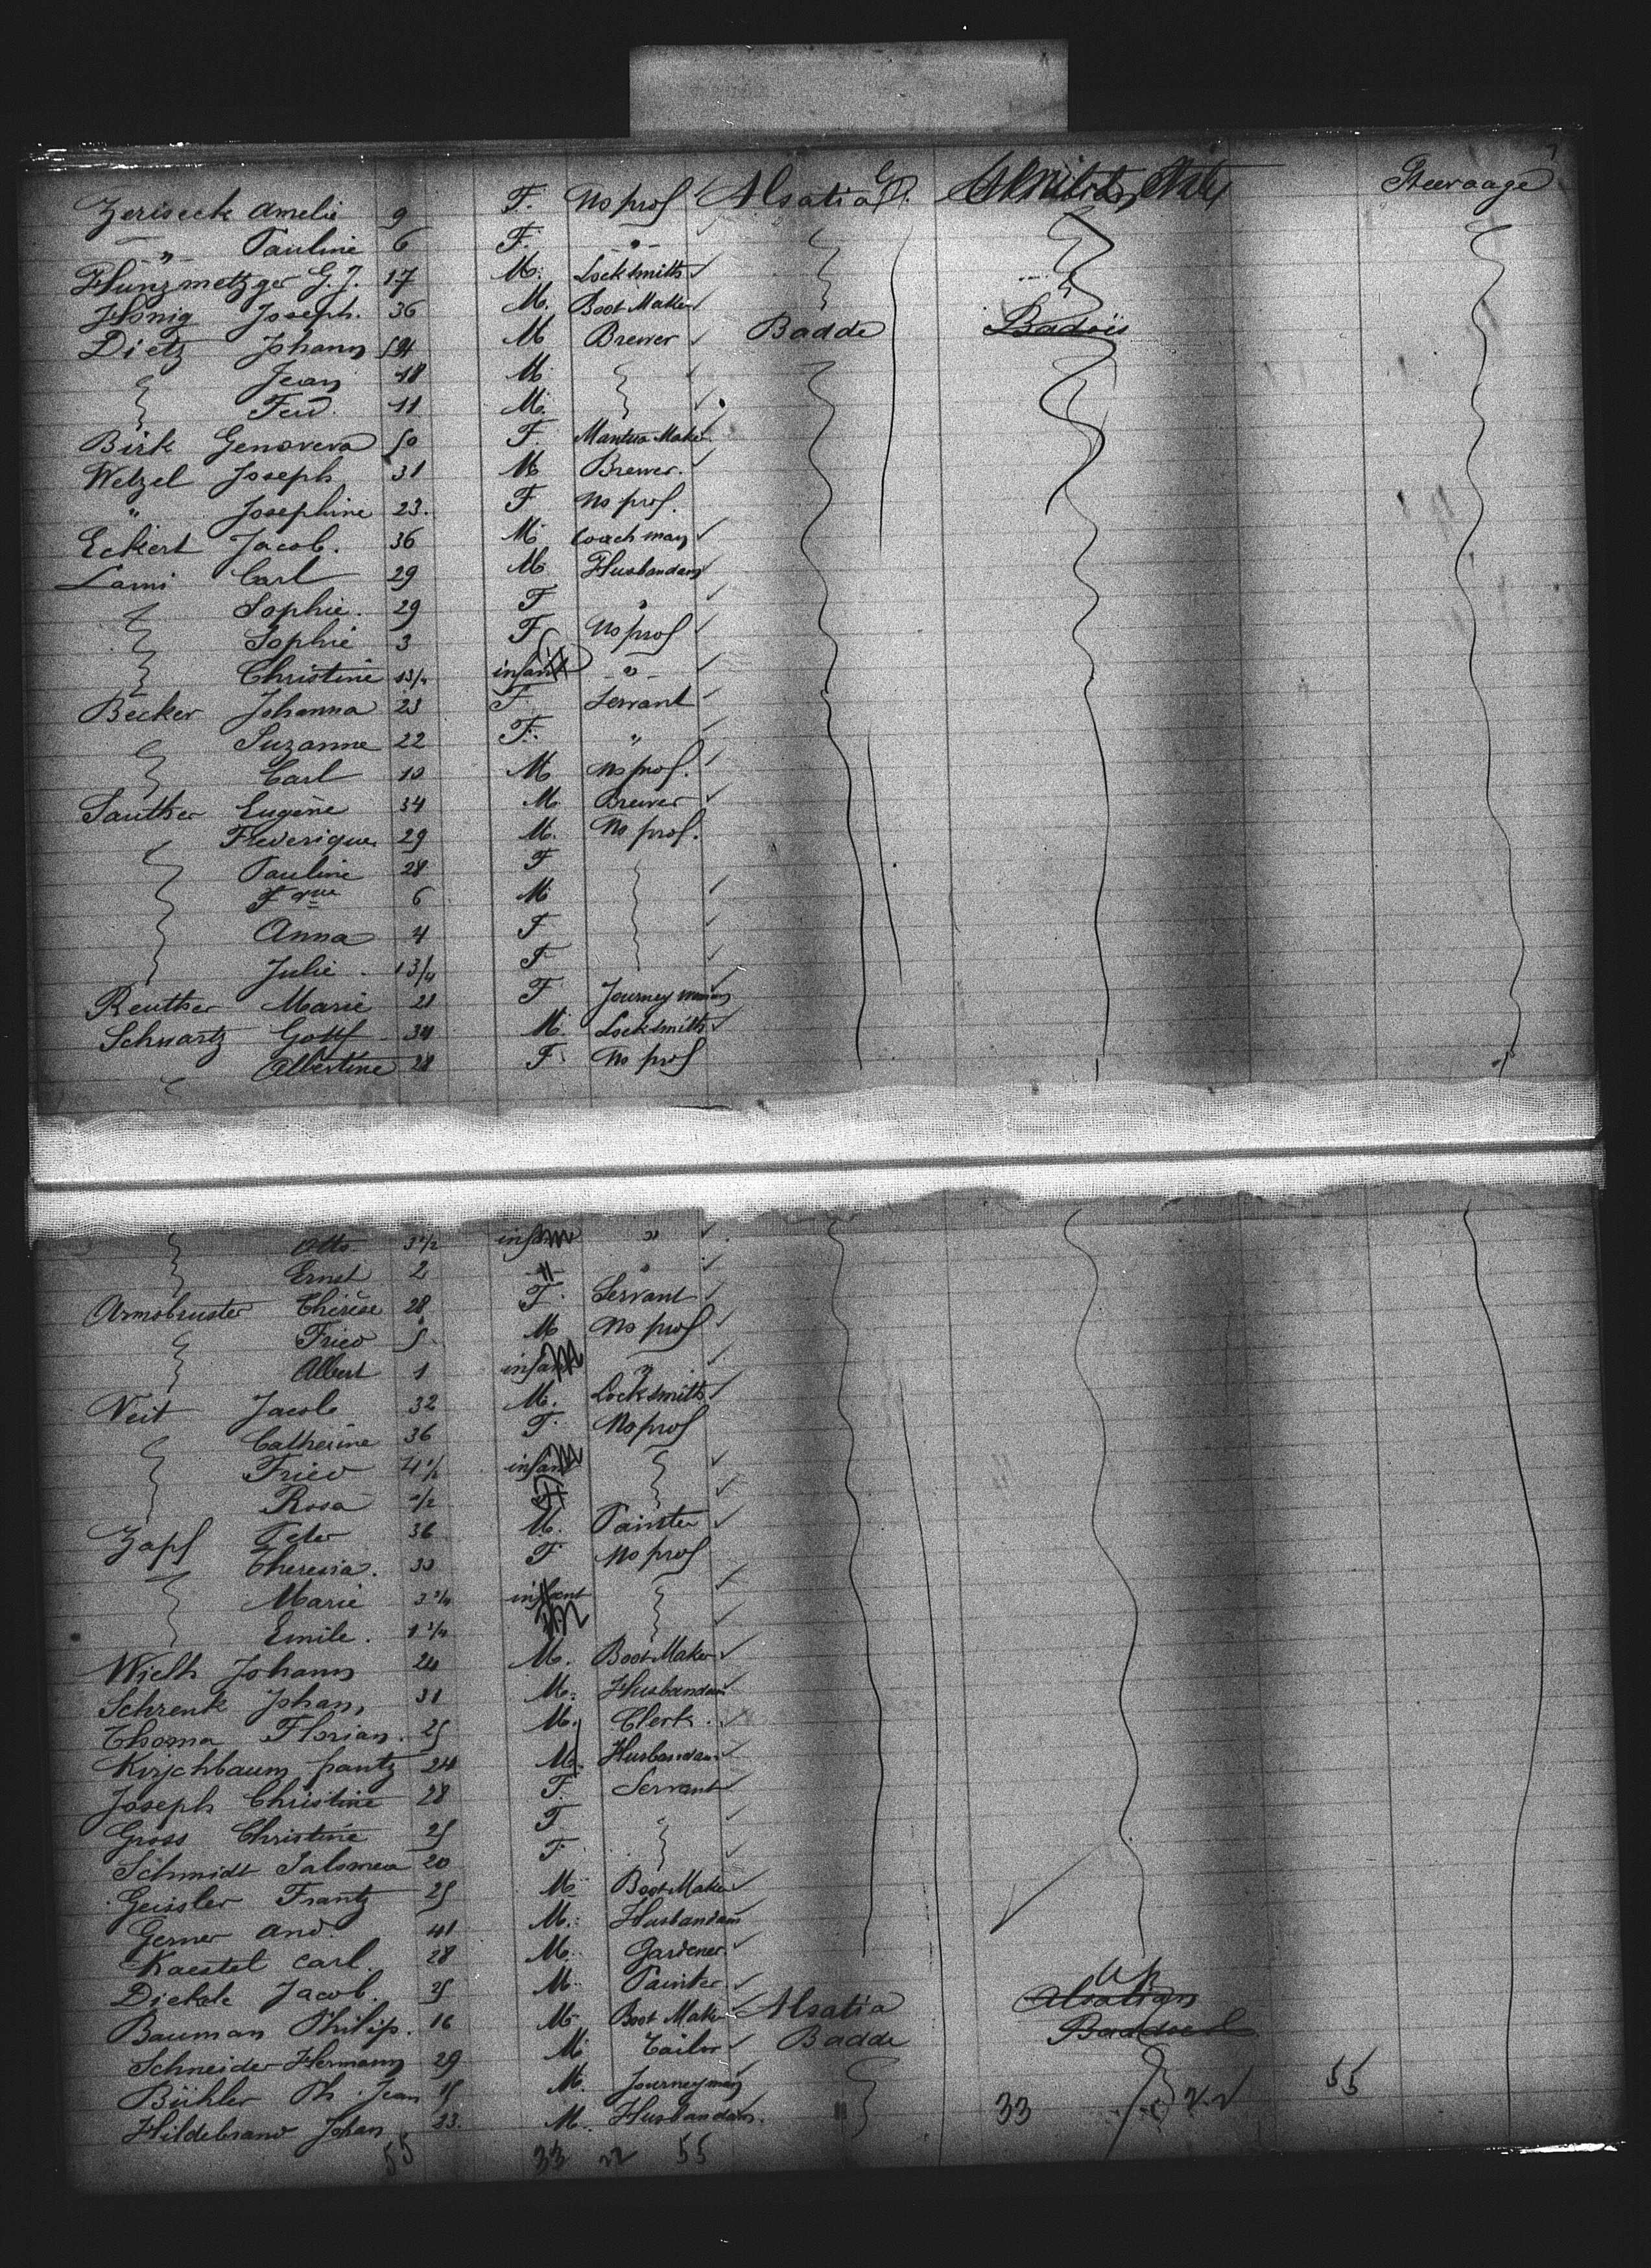 Zeriseck Amelie 9 F. No prof Alsatia Steeraage
" Pauline 6 F. "
Hunzmetzger G. J. 17 M. Locksmith
Honig Joseph. 36 M. Boot Maker
Dietz Johann 54 M Brewer Badde Badois
Jean 18 M
Ferd. 11 M.
Birk Genoveva 50 F. Mantua Maker
Wetzel Joseph 31 M Brewer.
" Josephine 23. F No prof.
Eckert Jacob. 36 M Coachman
Lami Carl 29 M Husbandam
Sophie. 29 F "
Sophie 3 F No prof
Christine 13/4 infant "
Becker Johanna 23 F Servant
Suzanne 22 F. "
Carl 10 M No prof.
Sauther Eugene 34 M. Brewer
Frederique 29 M. No prof.
Pauline 28 F
F que 6 M
Anna 4 F
Julie 1 3/4 F
Reuther Marie 21 F Journeyman
Schwartz Gottf 34 M. Locksmith
Albertine 28 F No prof
Otto 3 1/2 "
Ernst 2 " "
Armbruster Therese 28 F. Servant
Fried 5 M No prof
Albert 1 infant "
Veit Jacob 32 M. Locksmith
Catherine 36 F. No prof
Fried 4 1/2 infant
Rosa 1/2
Zapf Peter 36 M. Painter
Theresia. 30 F No prof
Marie 3 3/4 infant
Emile. 1 3/4
Wieth Johann 24 M. Boot Maker
Schrenk Johan, 31 M. Husbandam
Thoma Florian. 25 M. Clerk.
Kirschbaum frantz 24 M. Husbandam
Joseph Christine 28 F. Servant
Gross Christine 25 F
Schmidt Salomea 20 F
Geissler Frantz 25 M Boot Maker
Gerner And. 41 M. Husbandam
Kaestel Carl. 28 M. Gardener
Jacob. 25 M. Painter
Bauman Philip. 16 M. Boot Maker Alsatia Alsatian
Schneider Hermann 29 M Tailor Badde
Bühler Ph. Jean 15 M. Journeyman
Hildebrand Johan 23. M. Husbandam. 33 22 55
55 33 22 55